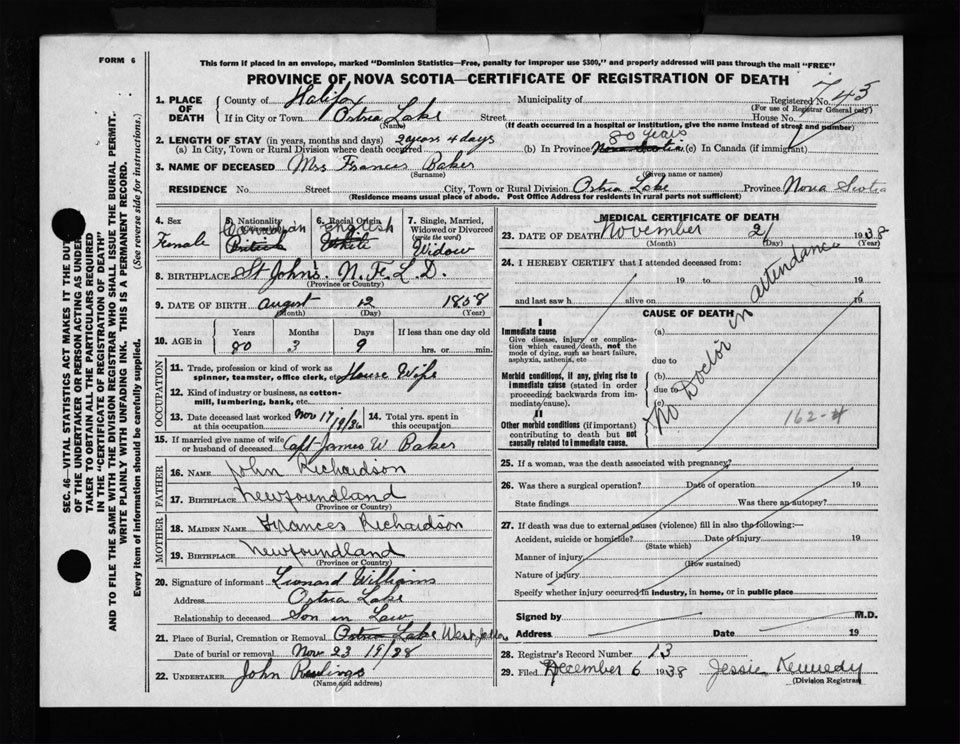 FORM 6
This form if placed in an envelope, marked "Dominion Statistics—Free, penalty for improper use $300," and properly addressed will pass through the mail "FREE"
PROVINCE OF NOVA SCOTIA—CERTIFICATE OF REGISTRATION OF DEATH
1. PLACE OF DEATH
County of Halifax Municipality of Registered No. 745
(For use of Registrar General only)
If in City or Town Ostrea Lake Street House No.
(Name) (If death occurred in a hospital or institution, give the name instead of street and number)
2. LENGTH OF STAY (in years, months and days) 2 years 4 days 80 years
(a) In City, Town or Rural Division where death occurred (b) In Province Nova Scotia (c) In Canada (if immigrant)
3. NAME OF DECEASED Mrs Frances Baker
(Surname) (Given name or names)
RESIDENCE No. Street City, Town or Rural Division Ostrea Lake Province Nova Scotia
(Residence means usual place of abode. Post Office Address for residents in rural parts not sufficient)
4. Sex Female
5. Nationality Canadian British
6. Racial Origin English White
7. Single, Married, Widowed or Divorced (write the word) Widow
8. BIRTHPLACE St John's. N.F.L.D.
(Province or Country)
9. DATE OF BIRTH August 12 1858
(Month) (Day) (Year)
10. AGE in Years Months Days If less than one day old
80 3 9 hrs. or min.
OCCUPATION
11. Trade, profession or kind of work as spinner, teamster, office clerk, etc. House Wife
12. Kind of industry or business, as cotton-mill, lumbering, bank, etc.
13. Date deceased last worked at this occupation Nov 17/1936
14. Total yrs. spent in this occupation
15. If married give name of wife or husband of deceased Capt James W Baker
FATHER
16. NAME John Richardson
17. BIRTHPLACE Newfoundland
(Province or Country)
MOTHER
18. MAIDEN NAME Frances Richardson
19. BIRTHPLACE Newfoundland
(Province or Country)
20. Signature of informant Leonard Williams
Address Ostrea Lake
Relationship to deceased Son in Law
21. Place of Burial, Cremation or Removal Ostrea Lake West Jeddore
Date of burial or removal Nov 23 19/38
22. UNDERTAKER John Rawlings
(Name and address)
MEDICAL CERTIFICATE OF DEATH
23. DATE OF DEATH November 21 1938
(Month) (Day) (Year)
24. I HEREBY CERTIFY that I attended deceased from:
19 to 19
and last saw h alive on 19
CAUSE OF DEATH
I
Immediate cause (a)
Give disease, injury or complication which caused death, not the mode of dying, such as heart failure, asphyxia, asthenia, etc due to
Morbid conditions, if any, giving rise to immediate cause (stated in order proceeding backwards from immediate cause). (b)
due to
(c)
II
Other morbid conditions (if important) contributing to death but not causally related to immediate cause.
No Doctor in attendance
162-4
25. If a woman, was the death associated with pregnancy?
26. Was there a surgical operation? Date of operation 19
State findings Was there an autopsy?
27. If death was due to external causes (violence) fill in also the following:—
Accident, suicide or homicide? Date of injury 19
(State which)
Manner of injury
(How sustained)
Nature of injury
Specify whether injury occurred in industry, in home, or in public place
Signed by M.D.
Address Date 19
28. Registrar's Record Number 13
29. Filed December 6 1938 Jessie Kennedy
(Division Registrar)
SEC. 46—VITAL STATISTICS ACT MAKES IT THE DUTY
OF THE UNDERTAKER OR PERSON ACTING AS UNDER-
TAKER TO OBTAIN ALL THE PARTICULARS REQUIRED
IN THE "CERTIFICATE OF REGISTRATION OF DEATH"
AND TO FILE THE SAME WITH THE DIVISION REGISTRAR WHO SHALL ISSUE THE BURIAL PERMIT.
WRITE PLAINLY WITH UNFADING INK. THIS IS A PERMANENT RECORD.
Every item of information should be carefully supplied. (See reverse side for instructions.)